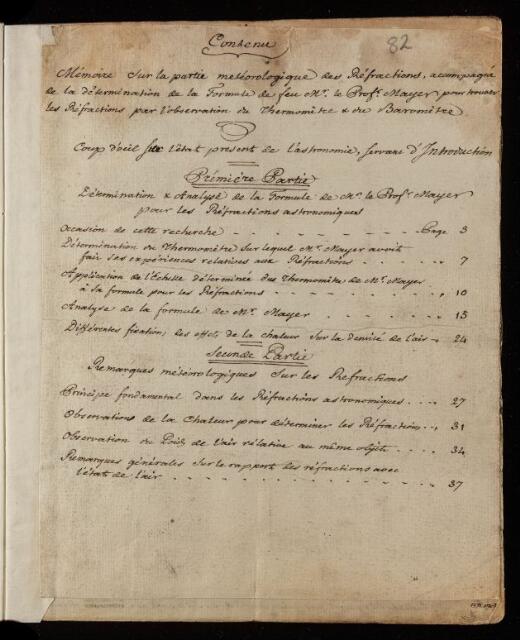 Contenu
82
Mémoire sur la partie météorologique des Réfractions, accompagné
de la détermination de la Formule de feu Mr. le Profr. Mayer pour trouver
les Réfractions par l'observation du Thermomètre & du Baromètre
Coup d'oeil sur l'état present de l'astronomie, servant d'Introduction
Prémière Partie
Détermination & Analyse de la Formule de Mr. le Profr. Mayer
pour les Réfractions astronomiques
Occasion de cette recherche - - - - - - - - Page 3
Détermination du Thermomètre sur lequel Mr. Mayer avoit
fait ses expériences relatives aux Réfractions - - - - - - 7
Application de l'Echelle déterminée du Thermomètre de Mr. Mayer
à sa formule pour les Réfractions - - - - - - - - 10
Analyse de la formule de Mr. Mayer - - - - - - - 15
Différentes fixations des effets de la chaleur sur la densité de l'air - 24
Seconde Partie
Remarques météorologiques sur les Refractions
Principe fondamental dans les Réfractions astronomiques - - - 27
Observations de la Chaleur pour déterminer les Réfractions - - 31
Observation du Poids de l'air rélative au même objet - - - - 34
Remarques générales sur le rapport des réfractions avec
l'état de l'air - - - - - - - - - - - - 37